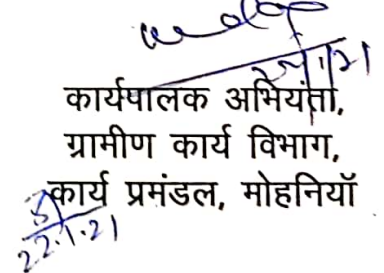 कार्यपालक अभियंता,
ग्रामीण कार्य विभाग,
कार्य प्रमंडल, मोहनियॉ
22.1.21